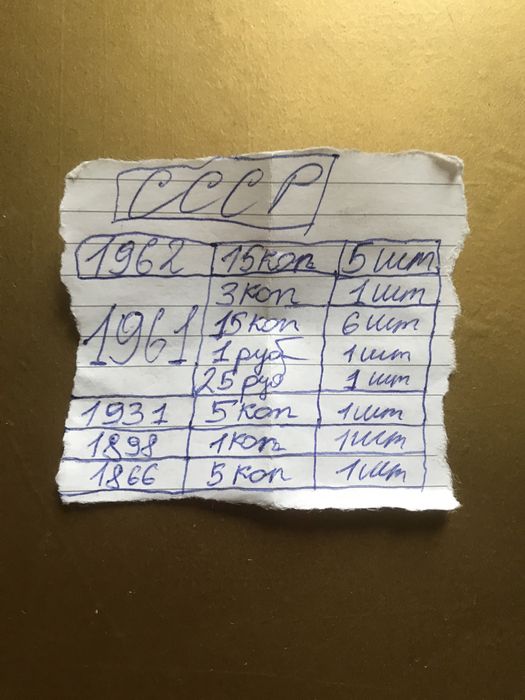 СССР
1962 15коп 5шт
3коп 1шт
1961 15коп 6шт
1руб 1шт
25руб 1шт
1931 5коп 1шт
1898 1коп 1шт
1866 5коп 1шт